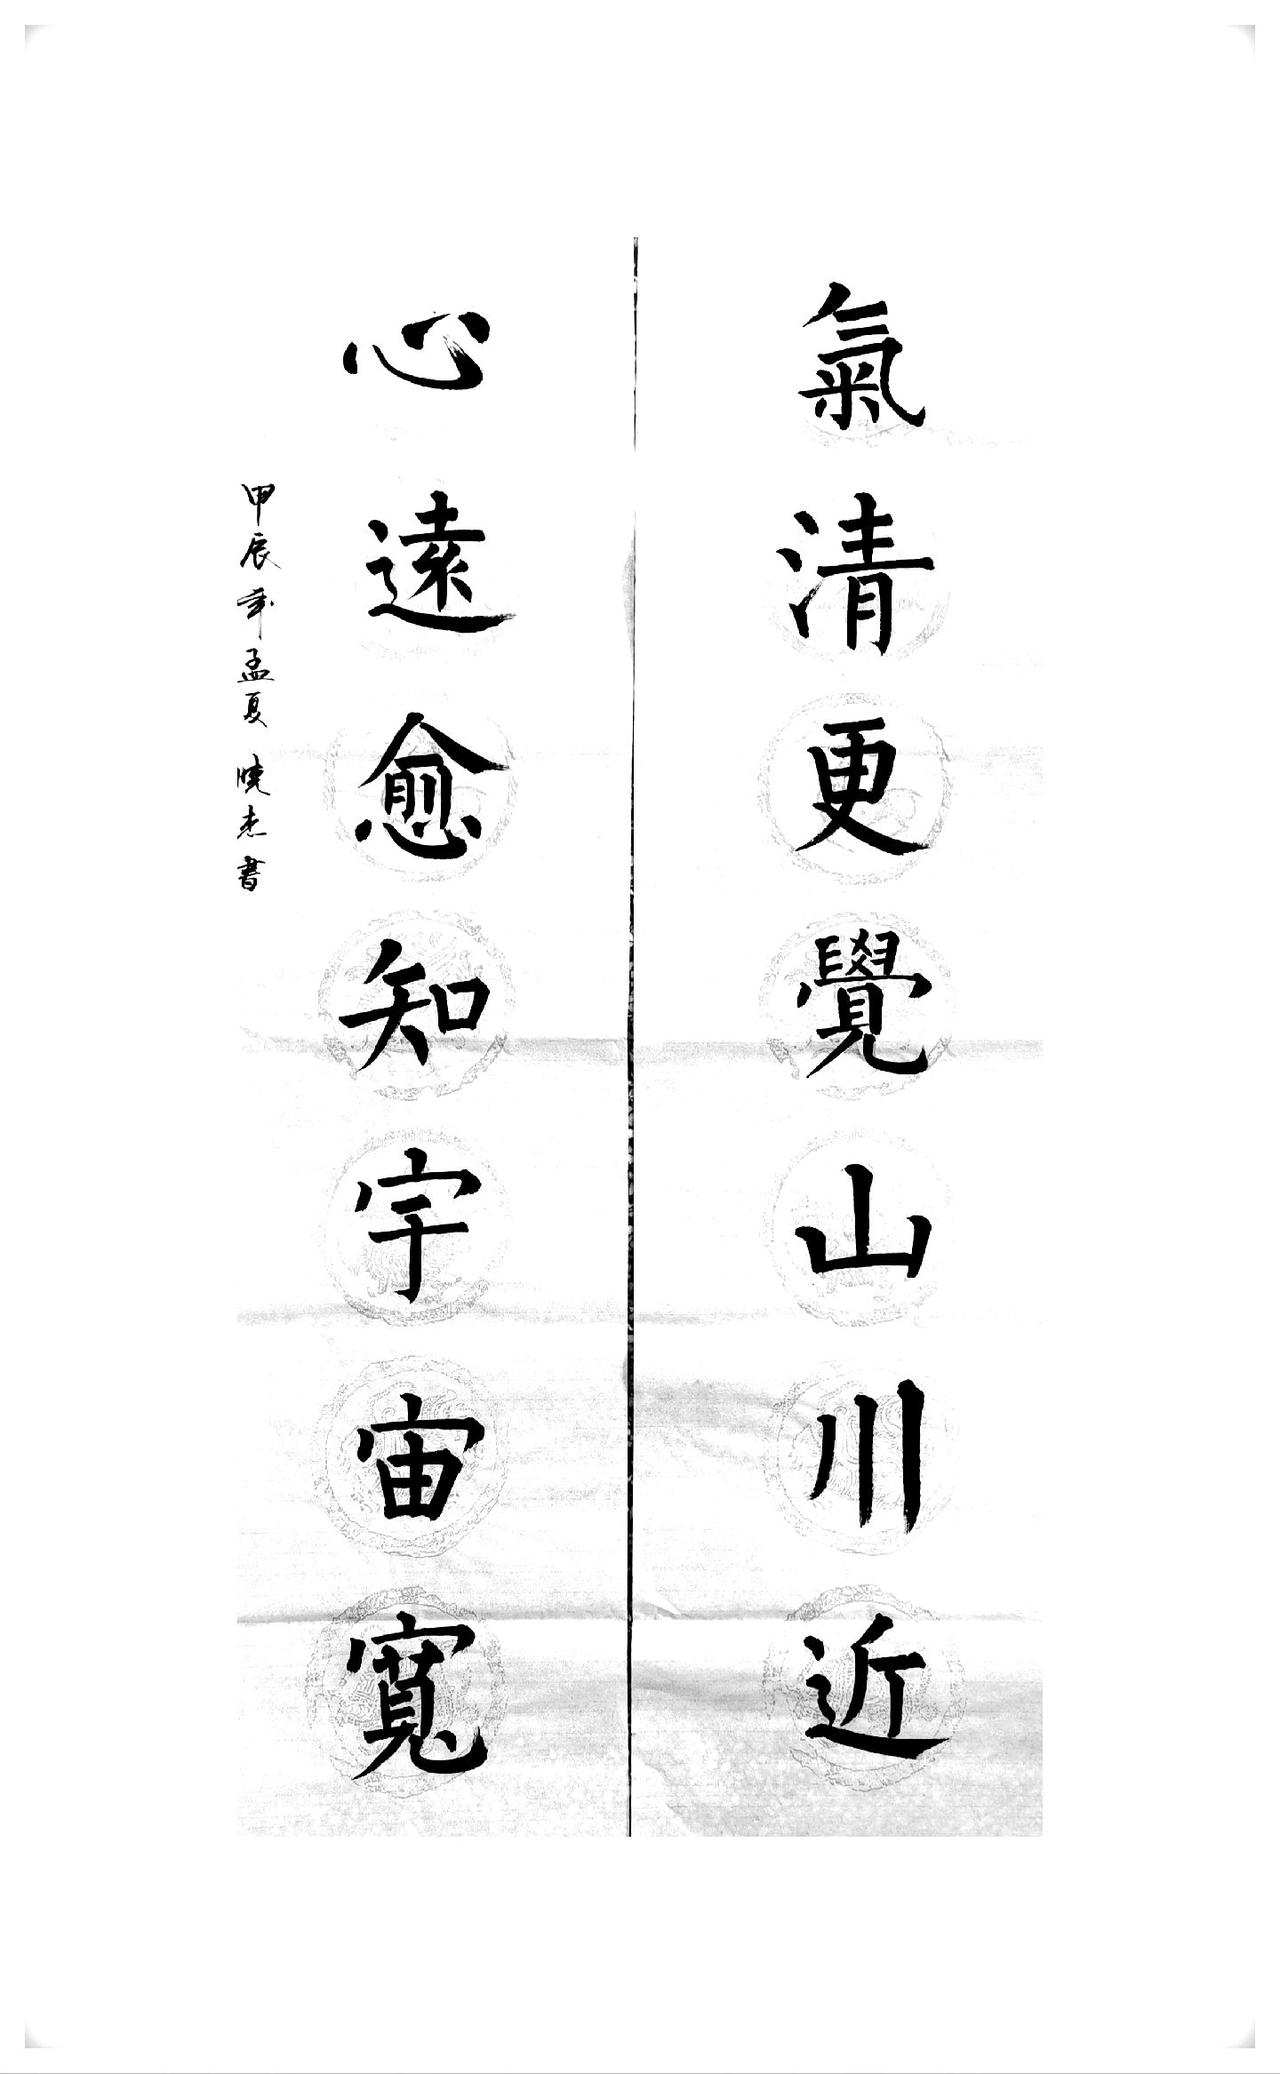 氣清更覺山川近
心遠愈知宇宙寬
甲辰年孟夏 曉杰書